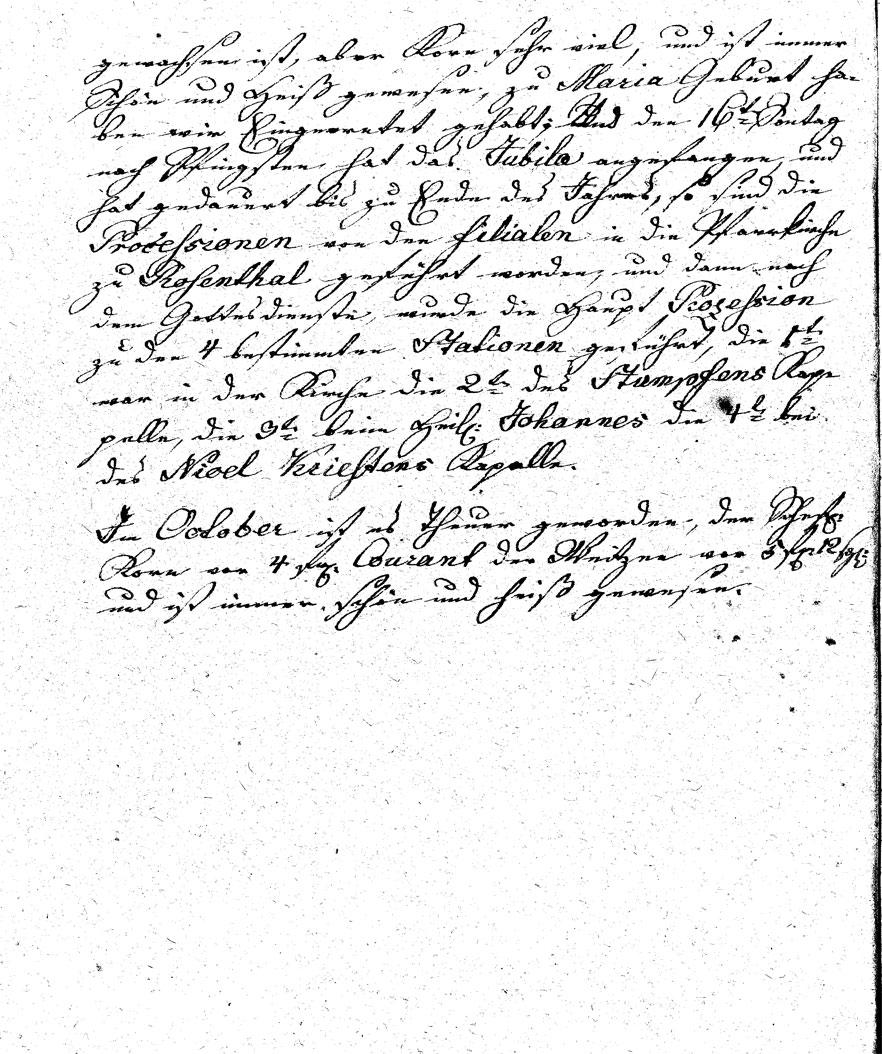 gewachsen ist, aber Korn sehr viel, und ist immer
Schön und Heiß gewesen, zu Maria Geburt ha-
ben wir Eingeerntet gehabt; Und den 16te Sontag
nach Pfingsten hat das Jubila angefangen, und
hat gedauert bis zu Ende des Jahres, so sind die
Processionen von den filialen in die Pfarrkirche
zu Rosenthal geführt worden, und dann nach
dem Gottesdienste, wurde die Haupt Prozession
zu den 4 bestimmten Stationen geführt, die 1te
war in der Kirche die 2te des Stumpfens Kap-
pelle, die 3te beim Heil: Johannes die 4te bei
des Kriestens Kapelle.
In October ist es Theuer geworden, der Scheffl:
Korn vor 4 Courant der Weitzen vor 5 12
und ist immer schön und heiß gewesen.